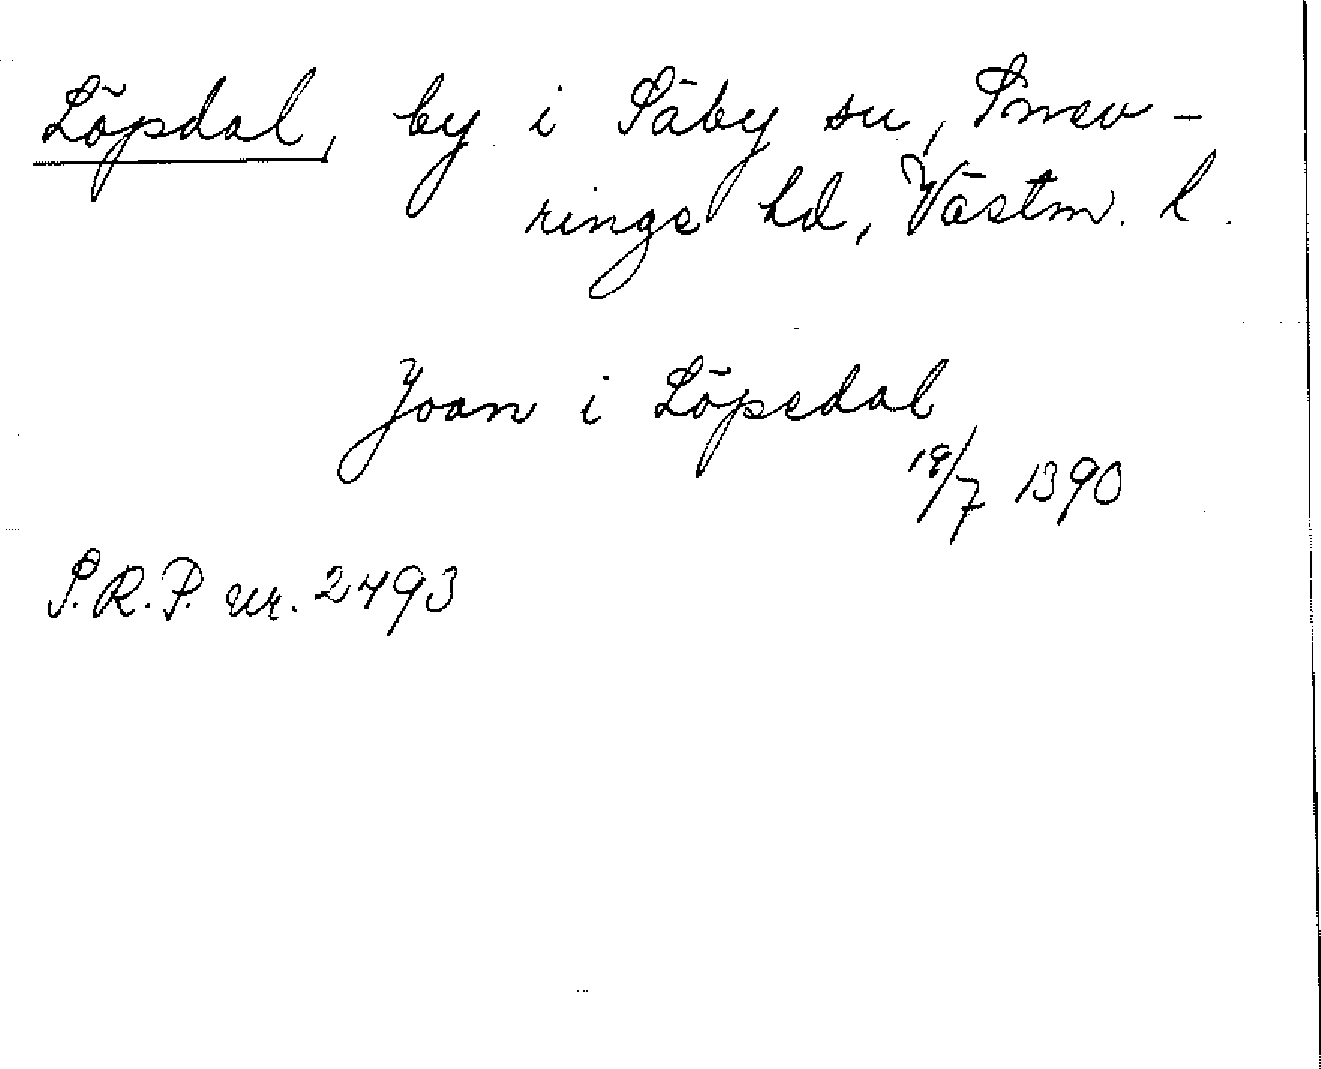 Löpdal, by i Säby sn, Snev-
ringe hd, Västm. l.
Joan i Löpedal
18/7 1390
S.R.P. nr. 2493